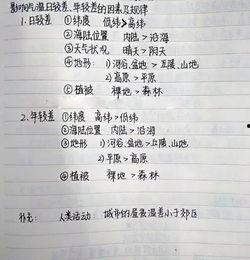 影响气温日较差、年较差的因素及规律
1. 日较差 ①纬度 低纬>高纬
②海陆位置 内陆>沿海
③天气状况 晴天>阴天
④地形: 1)河谷、盆地>丘陵、山地
2)高原>平原
⑤植被 裸地>森林
2、年较差 ①纬度 高纬>低纬
②海陆位置 内陆>沿海
③地形 1)河谷、盆地>丘陵、山地
2)平原>高原
④植被 裸地>森林
补充: 人类活动: 城市的昼夜温差小于郊区